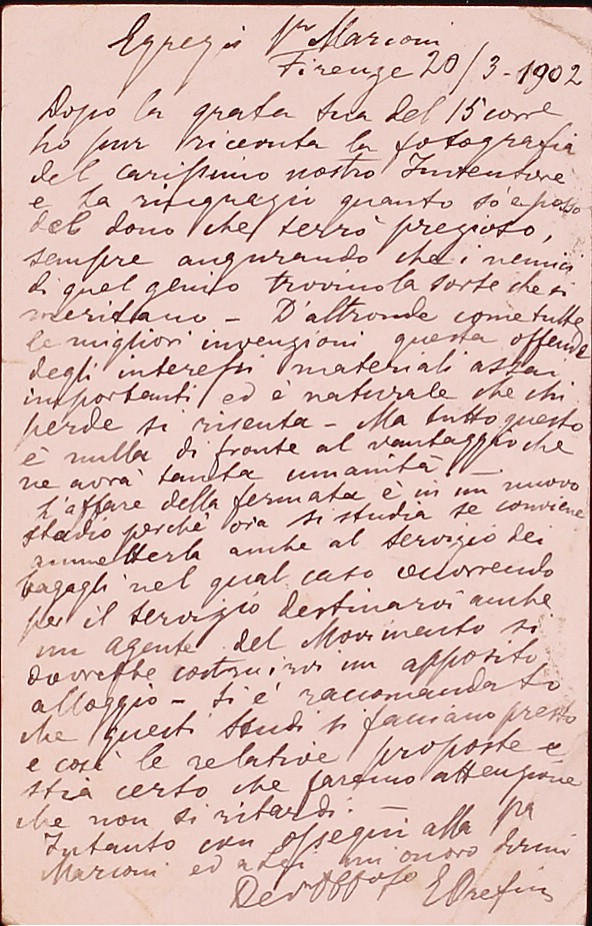 Egregio Sr Marconi
Firenze 20/3-1902
Dopo la grata sua del 15 corre
ho pur ricevuta la fotografia
del carissimo nostro Inventore
e La ringrazio quanto so e posso
del dono che terrò prezioso,
sempre augurando che i nemici
di quel genio trovino la sorte che si
meritano - D'altronde come tutte
le migliori invenzioni questa offende
degli interessi materiali assai
importanti ed è naturale che chi
perde si risenta - Ma tutto questo
è nulla di fronte al vantaggio che
ne avrà tanta umanità -
L'affare della fermata è in un nuovo
stadio perchè ora si studia se conviene
ammetterla anche al servizio dei
bagagli nel qual caso occorrendo
per il servizio destinarvi anche
un agente del Movimento si
dovrebbe costruirvi un apposito
alloggio - Si è raccomandato
che questi studi si facciano presto
e così le relative proposte e
stia certo che faremo attenzione
che non si ritardi -
Intanto con ossequi alla Sra
Marconi ed a Lei mi onoro dirmi
Dev Obbmo